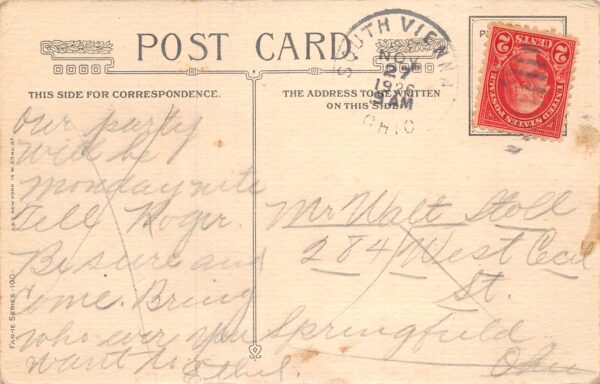 POST CARD
THIS SIDE FOR CORRESPONDENCE.
THE ADDRESS TO BE WRITTEN
ON THIS SIDE
SOUTH VIENNA
NOV
27
1926
AM
OHIO
2 CENTS 2
UNITED STATES POSTAGE
Our party
will be
monday nite
Tell Roger.
Be sure and
Come. Bring
who ever you
want to.
Ethel.
Mr Walt Stoll
284 West Cecil
St.
Springfield
Ohio